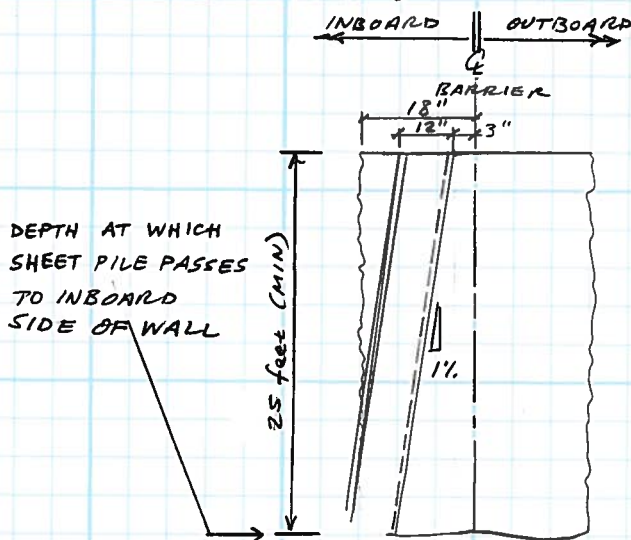 INBOARD OUTBOARD
℄
BARRIER
18"
12" 3"
DEPTH AT WHICH
SHEET PILE PASSES
TO INBOARD
SIDE OF WALL
25 feet (MIN)
1%